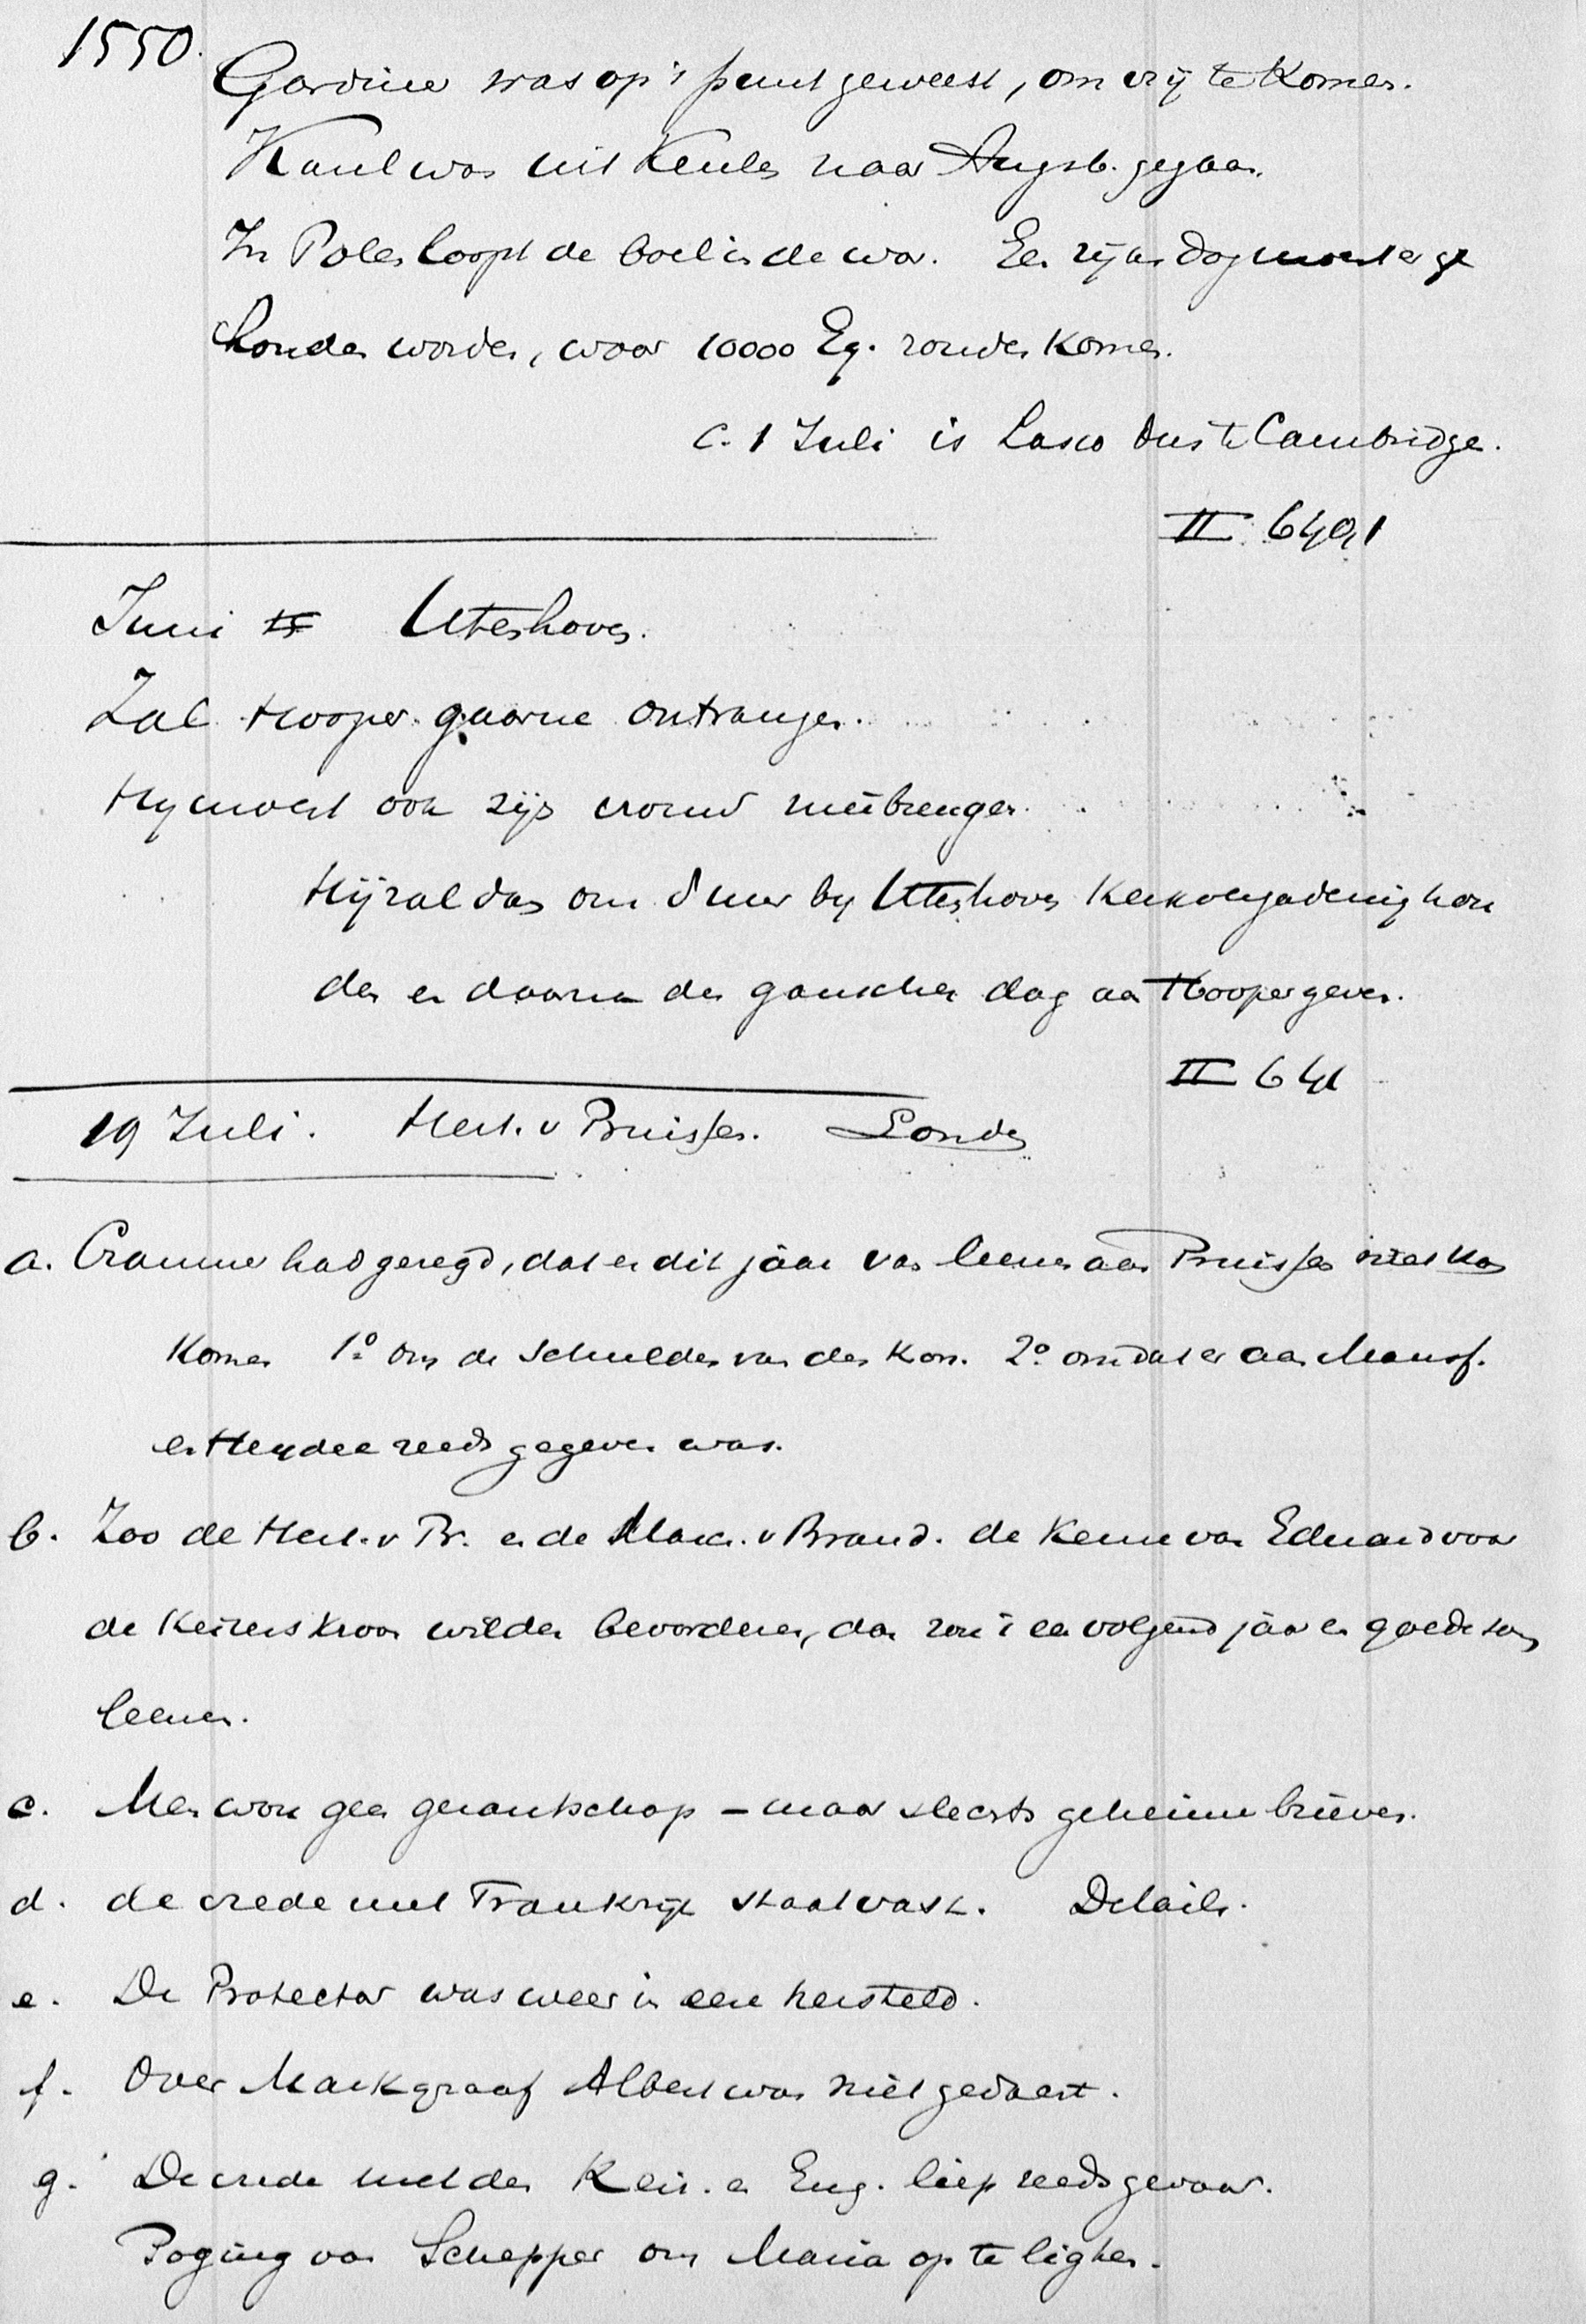 1550.
Gardiner was op 't punt geweest, om vrij te komen.
Karel was uit Keulen naar Augsb. gegaan.
In Polen loopt de boel in de war. Een rijksdag moest er ge
houden worden, waar 10000 Eq. zouden komen.
C. 1 Juli is Lasco dus te Cambridge.
II 640,1
Juni Utenhoven.
Zal Hooper gaarne ontvangen.
Hy moest ook zijn vrouw meêbrengen.
Hij zal dan om 8 uur by Utenhoven kerkvergadering hou
den en daarna den ganschen dag aan Hooper geven.
II 641
19 Juli. Hert. v Pruissen. Londen
a. Cranmer had gezegd, dat er dit jaar van leenen aan Pruissen niets kon
komen 1o om de schulden van den Kon. 2o omdat er aan Mansf.
en Heydec reeds gegeven was.
b. Zoo de Hert. v Pr. en de Marc. v Brand. de keuze van Eduard voor
de Keizerskroon wilden bevorderen, dan zou i een volgend jaar een goede som
leenen.
c. Men wou geen gezantschap - maar slechts geheime brieven.
d. de vrede met Frankrijk staat vast. Details.
e. De Protector was weer in eere hersteld.
f. Over Markgraaf Albert was niet gedacht.
g. De vrede met den Keiz. en Eng. liep reeds gevaar.
Poging van Schepper om Maria op te ligten.